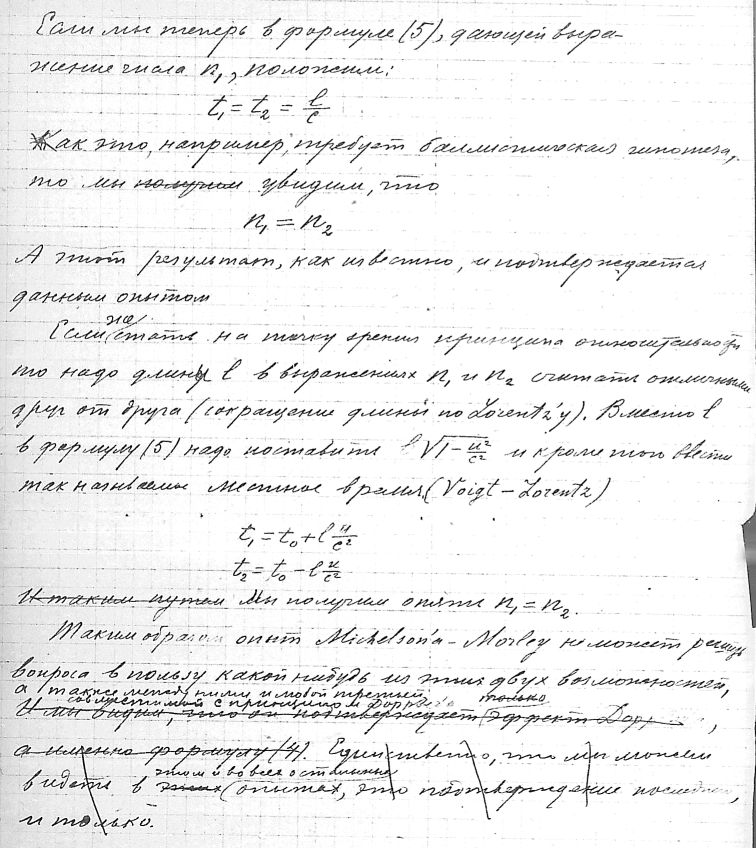 Если мы теперь в формуле (5), дающей выра-
жение числа n₁, положим:
t₁ = t₂ = l/c
Как это, например, требует баллистическая гипотеза,
то мы ~~получим~~ увидим, что
n₁ = n₂
А этот результат, как известно, и подтверждается
данным опытом
Если же стать на точку зрения принципа относительности
то надо длины l в выражениях n₁ и n₂ считать отличными
друг от друга (сокращение длины по Lorentz'у). Вместо l
в формулу (5) надо поставить l√(1−u²/c²) и кроме того ввести
так называемое местное время (Voigt – Lorentz)
t₁ = t₀ + l u/c²
t₂ = t₀ − l u/c²
~~И таким путем~~ Мы получим опять n₁ = n₂.
Таким образом опыт Michelson'a – Morley не может решить
вопроса в пользу какой нибудь из этих двух возможностей,
а также между ними и любой третьей,
совместимой с принципом
только
~~И мы видим, что он подтверждает эффект~~
~~а именно формулу (4)~~. Единственно, что мы можем
этом и во всех остальных
видеть в ~~этих~~ опытах, это подтверждение последнего,
и только.